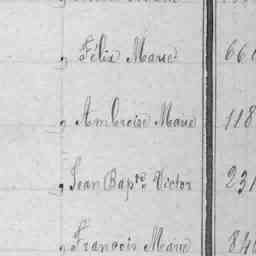 g Félix Marie 660
g Ambroise Marie 118
g Jean Bap.te Victor 231
g François Marie 840